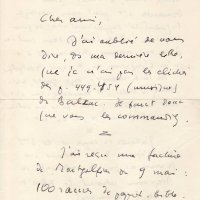 Cher ami,
J'ai oublié de vous
dire, ds ma dernière lettre,
que je n'ai pas les clichés
des p. 449-454 (musique)
de Balzac. Il faut donc
que vous les commandiez.
J'ai reçu une facture
de Montpellier du 9 mai :
100 rames de papier bible